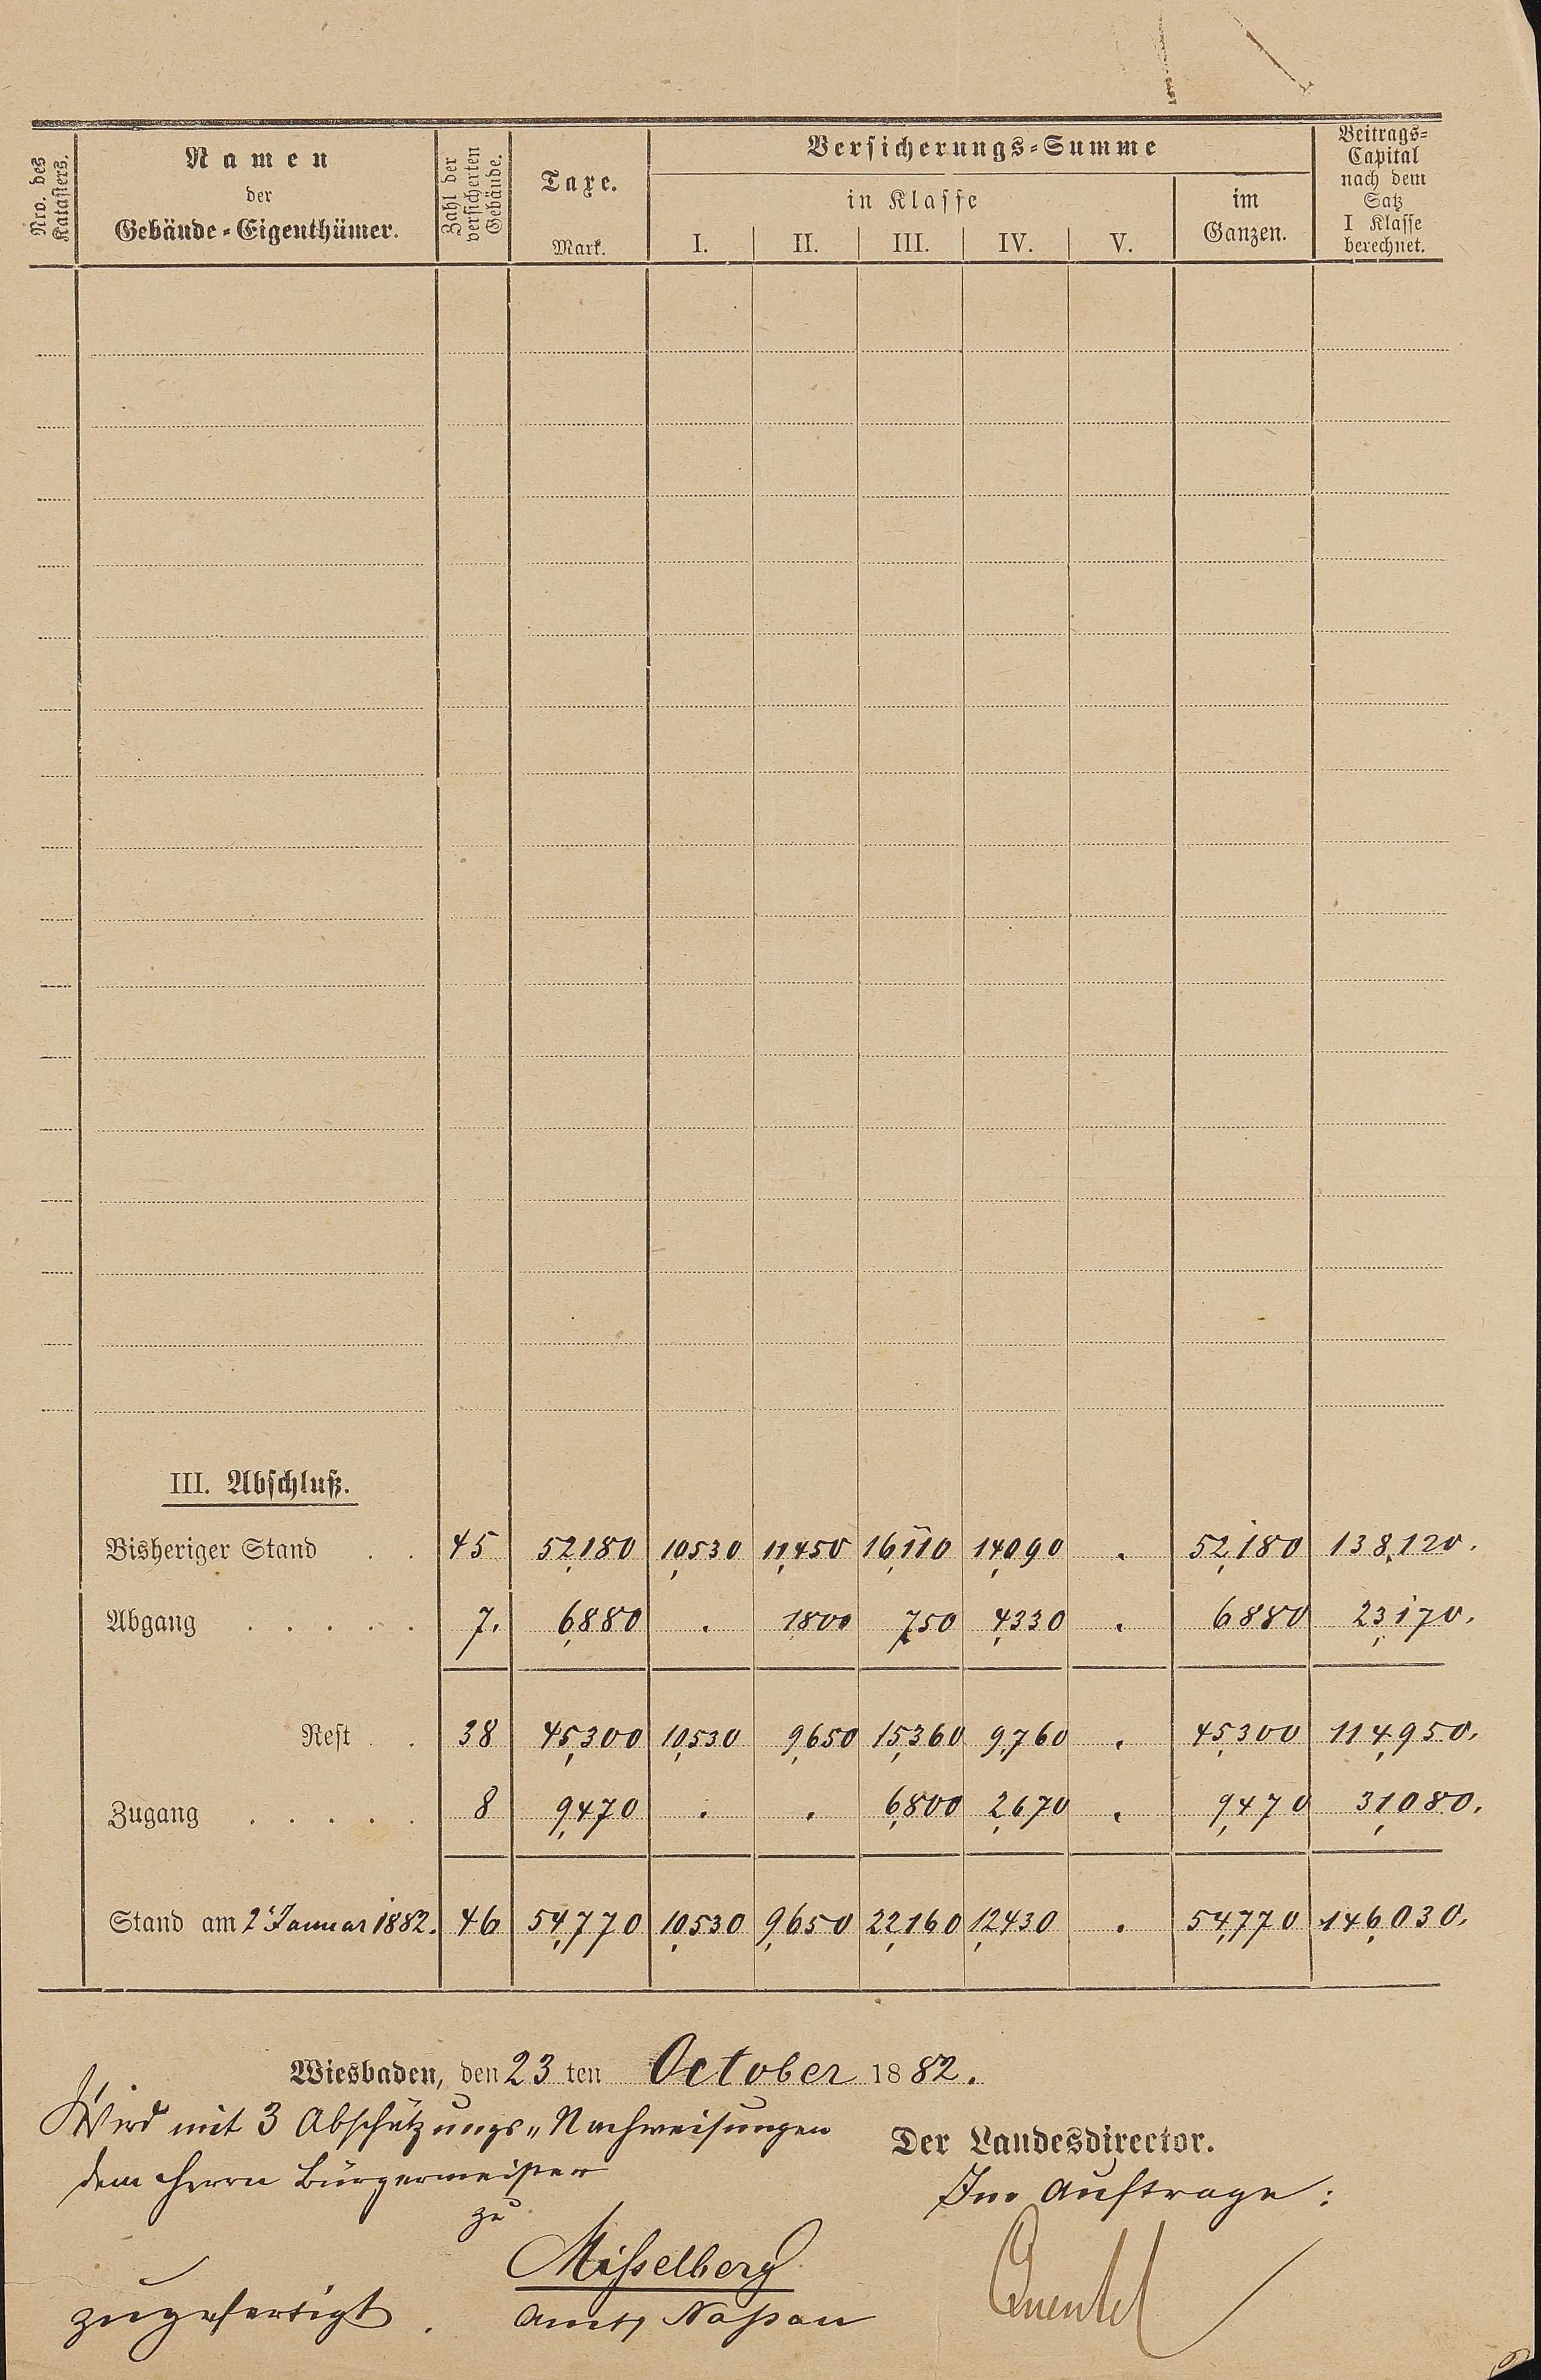 Nro. des Katasters.
Namen
der
Gebäude-Eigenthümer.
Zahl der versicherten Gebäude.
Taxe.
Mark.
Versicherungs-Summe
in Klasse
I. II. III. IV. V.
im
Ganzen.
Beitrags-
Capital
nach dem
Satz
I Klasse
berechnet.
III. Abschluß.
Bisheriger Stand . . 45 52,180 10,530 11,450 16,110 14,090 . 52,180 138,120.
Abgang . . . . . 7. 6,880 . 1,800 750 4,330 . 6880 23,170.
Rest . . 38 45,300 10,530 9,650 15,360 9,760 . 45,300 114,950.
Zugang . . . . . 8 9,470 . . 6,800 2,670 . 9,470 31,080.
Stand am 2. Januar 1882. 46 54,770 10,530 9,650 22,160 12,430 . 54,770 146,030.
Wiesbaden, den 23 ten October 1882.
Wird mit 3 Abschätzungs-Nachweisungen
dem Herrn Bürgermeister
zu
Misselberg
Amts Nassau
zugefertigt.
Der Landesdirector.
Im Auftrage: